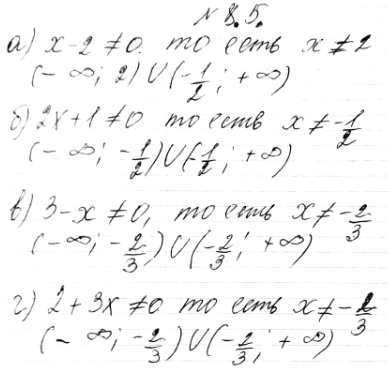 № 8.5.
а) x-2 ≠0. то есть x ≠ 2
(- ∞; 2) U (-1/2; +∞)
б) 2x+1≠0 то есть x ≠ -1/2
(- ∞; -1/2) U (-1/2; +∞)
в) 3-x ≠0, то есть x≠ -2/3
(-∞; -2/3) U (-2/3; +∞)
г) 2+3x ≠0 то есть x≠ -2/3
(- ∞; -2/3) U (-2/3; +∞)